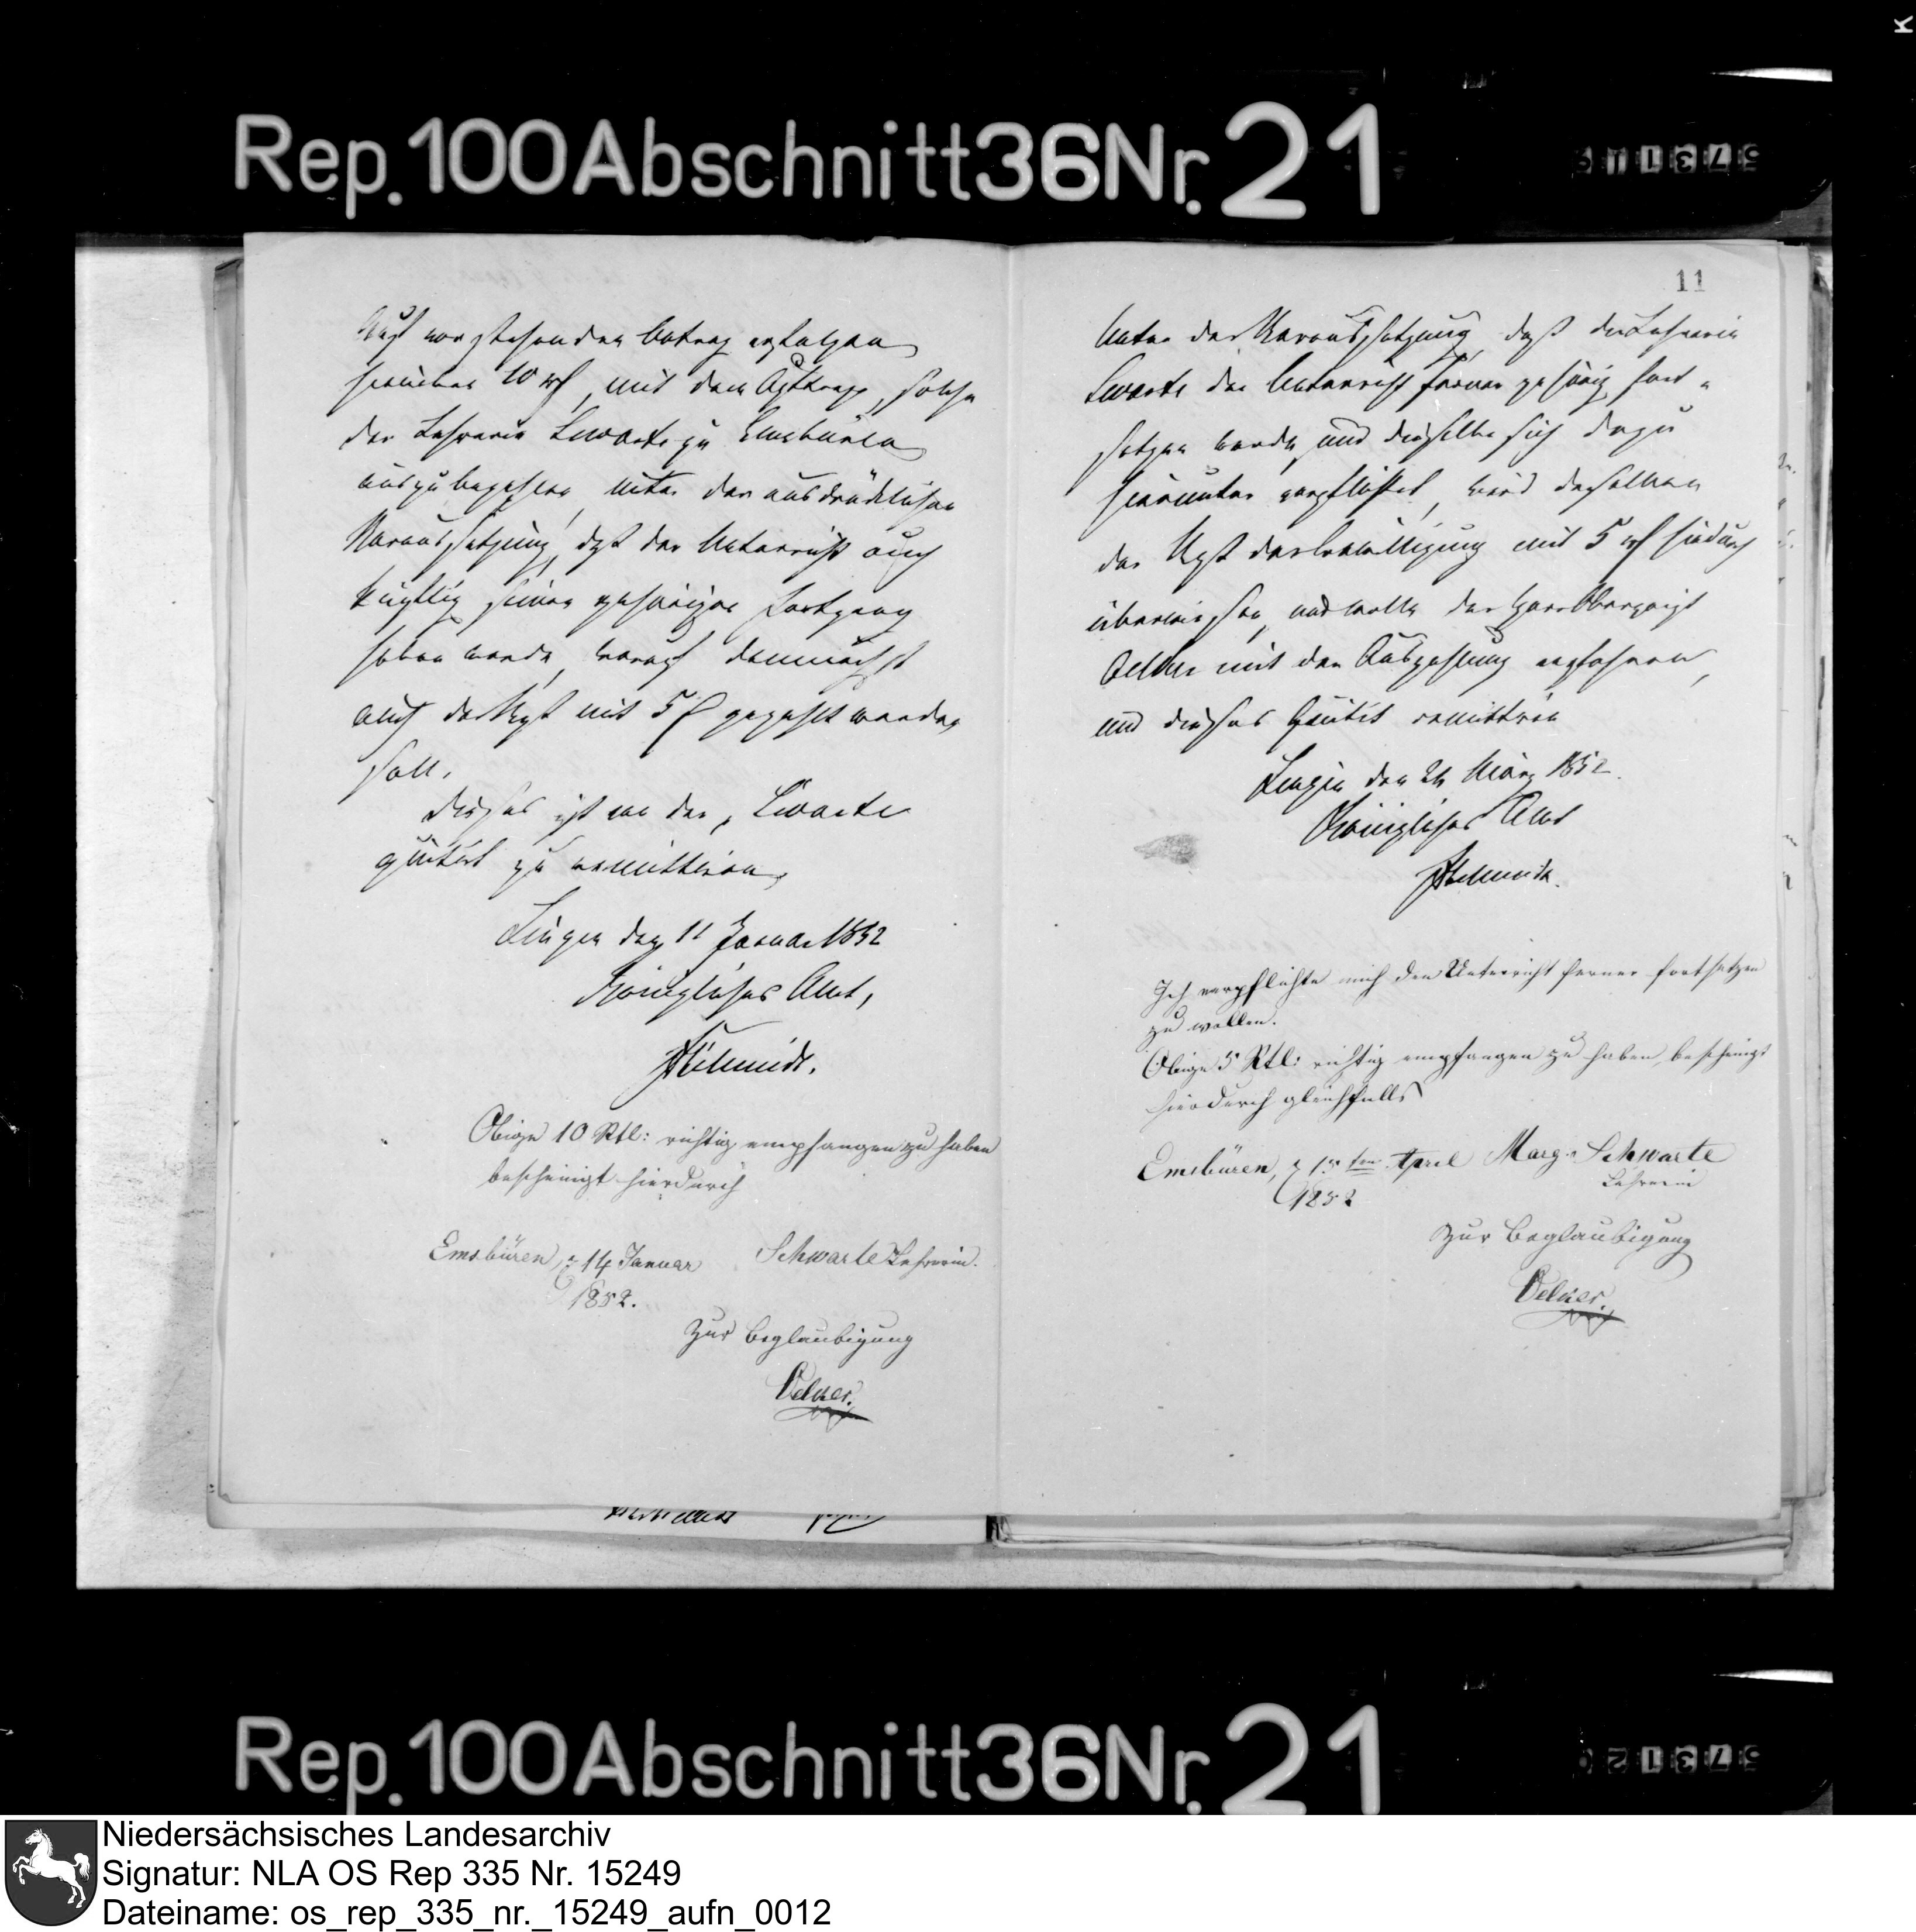 Rep. 100 Abschnitt 36 Nr. 21
11
Auf vorstehenden Betrag erfolgen
hieneben 10 rf, mit dem Auftrage, solche
der Lehrerin Swarte zu Emsbüren
auszubezahlen, unter der ausdrücklichen
Voraussetzung, daß der Unterricht auch
künftig seinen gehörigen Fortgang
haben werde, worauf demnächst
auch der Rest mit 5 rf gezahlt werden
soll.
Dieses ist von der p. Swarte
quitirt zu remittiren,
Lingen den 11 Januar 1852
Königliches Amt,
Schmidt.
Obige 10 Rtl: richtig empfangen zu haben
bescheinigt hierdurch
Emsbüren, d. 14 Januar Schwarte Lehrerin.
1852.
Zur Beglaubigung
Oelker.
Unter der Voraussetzung, daß die Lehrerin
Swarte den Unterricht ferner gehörig fort-
setzen werde, und dieselbe sich dazu
hierunter verpflichtet, wird derselben
der Rest der Bewilligung mit 5 rf hiedurch
überwiesen, und wolle der Herr Obervoigt
Oelker mit der Auszahlung verfahren,
und dieses quitirt remittiren
Lingen den März 1852.
Königliches Amt
Schmidt.
Ich verpflichte mich den Unterricht ferner fortsetzen
zu wollen.
Obige 5 Rtl: richtig empfangen zu haben bescheinigt
hierdurch gleichfalls
Emsbüren, d. 15ten April Marg. Schwarte
1852 Lehrerin
Zur Beglaubigung
Oelker.
Rep. 100 Abschnitt 36 Nr. 21
Niedersächsisches Landesarchiv
Signatur: NLA OS Rep 335 Nr. 15249
Dateiname: os_rep_335_nr._15249_aufn_0012